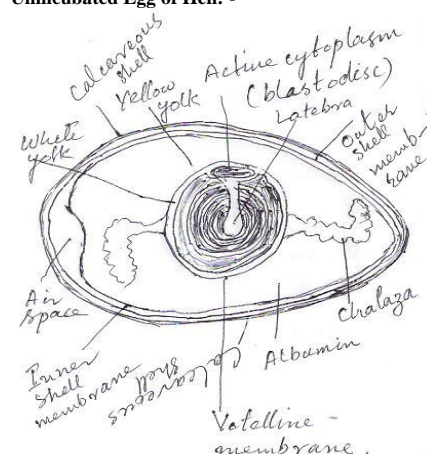 Unincubated Egg of Hen: -
Calcareous
shell
Yellow
yolk
Active cytoplasm
(blastodisc)
Latebra
Outer
shell
memb-
rane
White
yolk
Air
space
Inner
shell
membrane
Calcareous
shell
Albumin
Chalaza
Vetelline -
membrane.